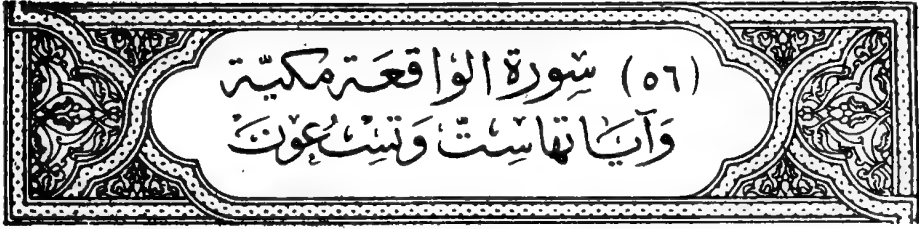 (٥٦) سُورَة الوَاقعَة مكيّة
وَآيَاتهَا سِتّ وَتِسْعُونَ